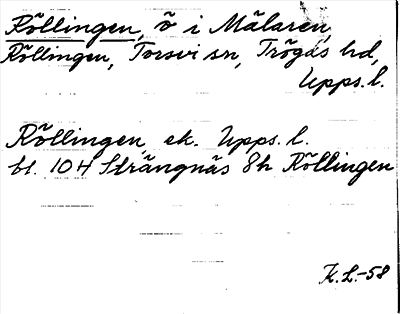 Röllingen, ö i Mälaren,
Röllingen, Torsvi sn, Trögds hd,
Upps. l.
Röllingen, ek. Upps. l.
bl. 104 Strängnäs 8h Röllingen
K.L.-58